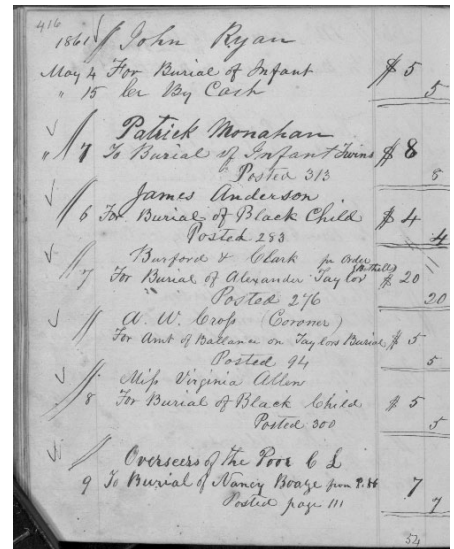 416
1861 John Ryan
May 4 For Burial of Infant $ 5
" 15 Cr By Cash 5
Patrick Monahan
" 7 To Burial of Infant Twins $ 8
Posted 313 8
James Anderson
6 For Burial of Black Child $ 4
Posted 283 4
Burford & Clark per Order
7 For Burial of Alexander Taylor $ 20
Posted 276 20
A. W. Cross (Coroner)
For Amt of Ballance on Taylors Burial $ 5
Posted 94 5
Miss Virginia Allen
8 For Burial of Black Child $ 5
Posted 300 5
Overseers of the Poor C L
9 To Burial of Nancy Boaze 7
Posted page 111 7
54